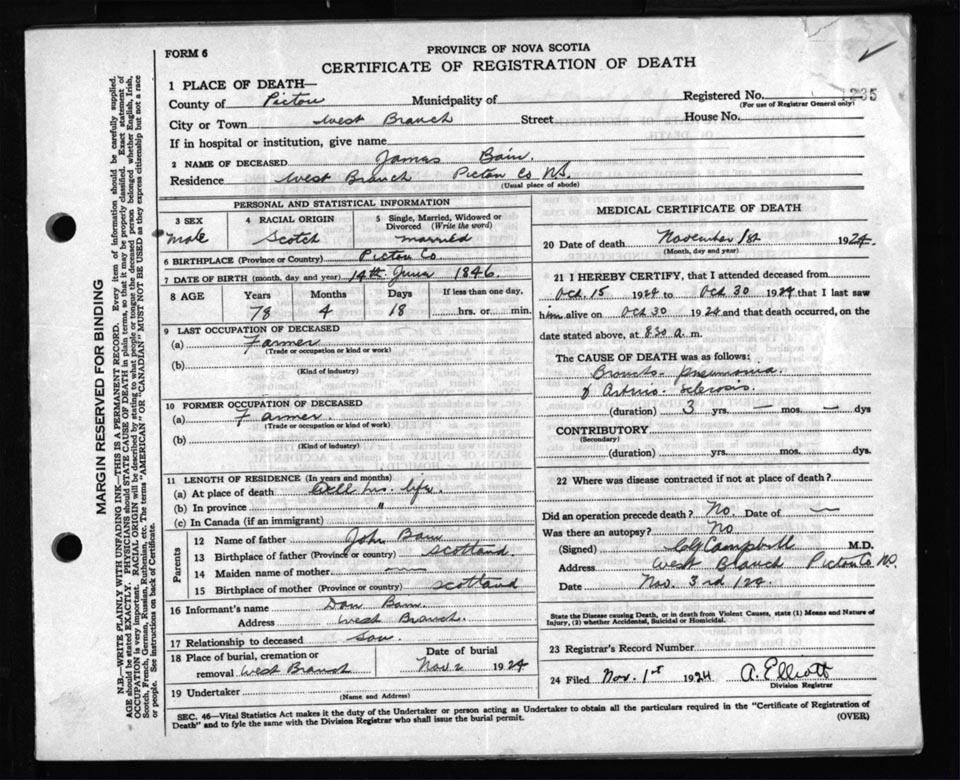 FORM 6
PROVINCE OF NOVA SCOTIA
CERTIFICATE OF REGISTRATION OF DEATH
1 PLACE OF DEATH—
Registered No. 1235
(For use of Registrar General only)
County of Pictou Municipality of
City or Town West Branch Street House No.
If in hospital or institution, give name
2 NAME OF DECEASED James Bain.
Residence West Branch Pictou Co NS.
(Usual place of abode)
PERSONAL AND STATISTICAL INFORMATION
3 SEX
Male
4 RACIAL ORIGIN
Scotch
5 Single, Married, Widowed or
Divorced (Write the word)
married
6 BIRTHPLACE (Province or Country) Pictou Co
7 DATE OF BIRTH (month, day and year) 14th June 1846.
8 AGE Years Months Days If less than one day,
78 4 18 hrs. or min.
9 LAST OCCUPATION OF DECEASED
(a) Farmer
(Trade or occupation or kind or work)
(b)
(Kind of industry)
10 FORMER OCCUPATION OF DECEASED
(a) Farmer.
(Trade or occupation or kind or work)
(b)
(Kind of industry)
11 LENGTH OF RESIDENCE (In years and months)
(a) At place of death All his life.
(b) In province "
(c) In Canada (if an immigrant)
Parents
12 Name of father John Bain
13 Birthplace of father (Province or country) Scotland.
14 Maiden name of mother —
15 Birthplace of mother (Province or country) Scotland
16 Informant's name Dan Bain.
Address West Branch.
17 Relationship to deceased son.
18 Place of burial, cremation or
removal West Branch
Date of burial
Nov 2 1924
19 Undertaker
(Name and Address)
MEDICAL CERTIFICATE OF DEATH
20 Date of death November 1st 1924.
(Month, day and year)
21 I HEREBY CERTIFY, that I attended deceased from
Oct. 15 1924 to Oct 30 1924 that I last saw
him alive on Oct 30 1924 and that death occurred, on the
date stated above, at 8.30 a. m.
The CAUSE OF DEATH was as follows:
Broncho- pneumonia.
sclerosis.
(duration) 3 yrs. — mos. — dys
CONTRIBUTORY
(Secondary)
(duration) yrs. mos. dys.
22 Where was disease contracted if not at place of death?
Did an operation precede death? No. Date of —
Was there an autopsy? No
(Signed) Campbell M.D.
Address West Branch Pictou Co. NS.
Date Nov. 3rd 124
State the Disease causing Death, or in death from Violent Causes, state (1) Means and Nature of
Injury, (2) whether Accidental, Suicidal or Homicidal.
23 Registrar's Record Number
24 Filed Nov. 1st 1924 A. Elliott
Division Registrar
SEC. 46—Vital Statistics Act makes it the duty of the Undertaker or person acting as Undertaker to obtain all the particulars required in the "Certificate of Registration of
Death" and to fyle the same with the Division Registrar who shall issue the burial permit. (OVER)
MARGIN RESERVED FOR BINDING
N.B.—WRITE PLAINLY WITH UNFADING INK—THIS IS A PERMANENT RECORD. Every item of information should be carefully supplied.
AGE should be stated EXACTLY. PHYSICIANS should STATE CAUSE OF DEATH in plain terms, so that it may be properly classified. Exact statement of
OCCUPATION is very important. RACIAL ORIGIN will be described by stating to what people or tongue the deceased person belonged whether English, Irish,
Scotch, French, German, Russian, Ruthenian, etc. The terms "AMERICAN" OR "CANADIAN" MUST NOT BE USED as they express citizenship but not a race
or people. See Instructions on back of Certificate.